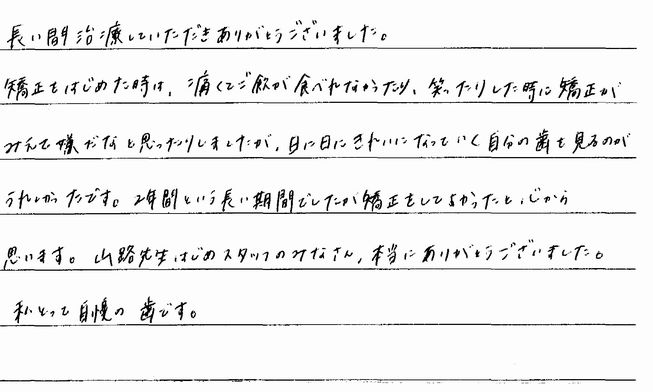 長い間治療していただきありがとうございました。
矯正をはじめた時は、痛くてご飲が食べれなかったり、笑ったりした時に矯正が
みえて嫌だなと思ったりしましたが、日に日にきれいになっていく自分の歯を見るのが
うれしかったです。2年間という長い期間でしたが矯正をしてよかったと心から
思います。山路先生はじめスタッフのみなさん、本当にありがとうございました。
私にとって自慢の歯です。